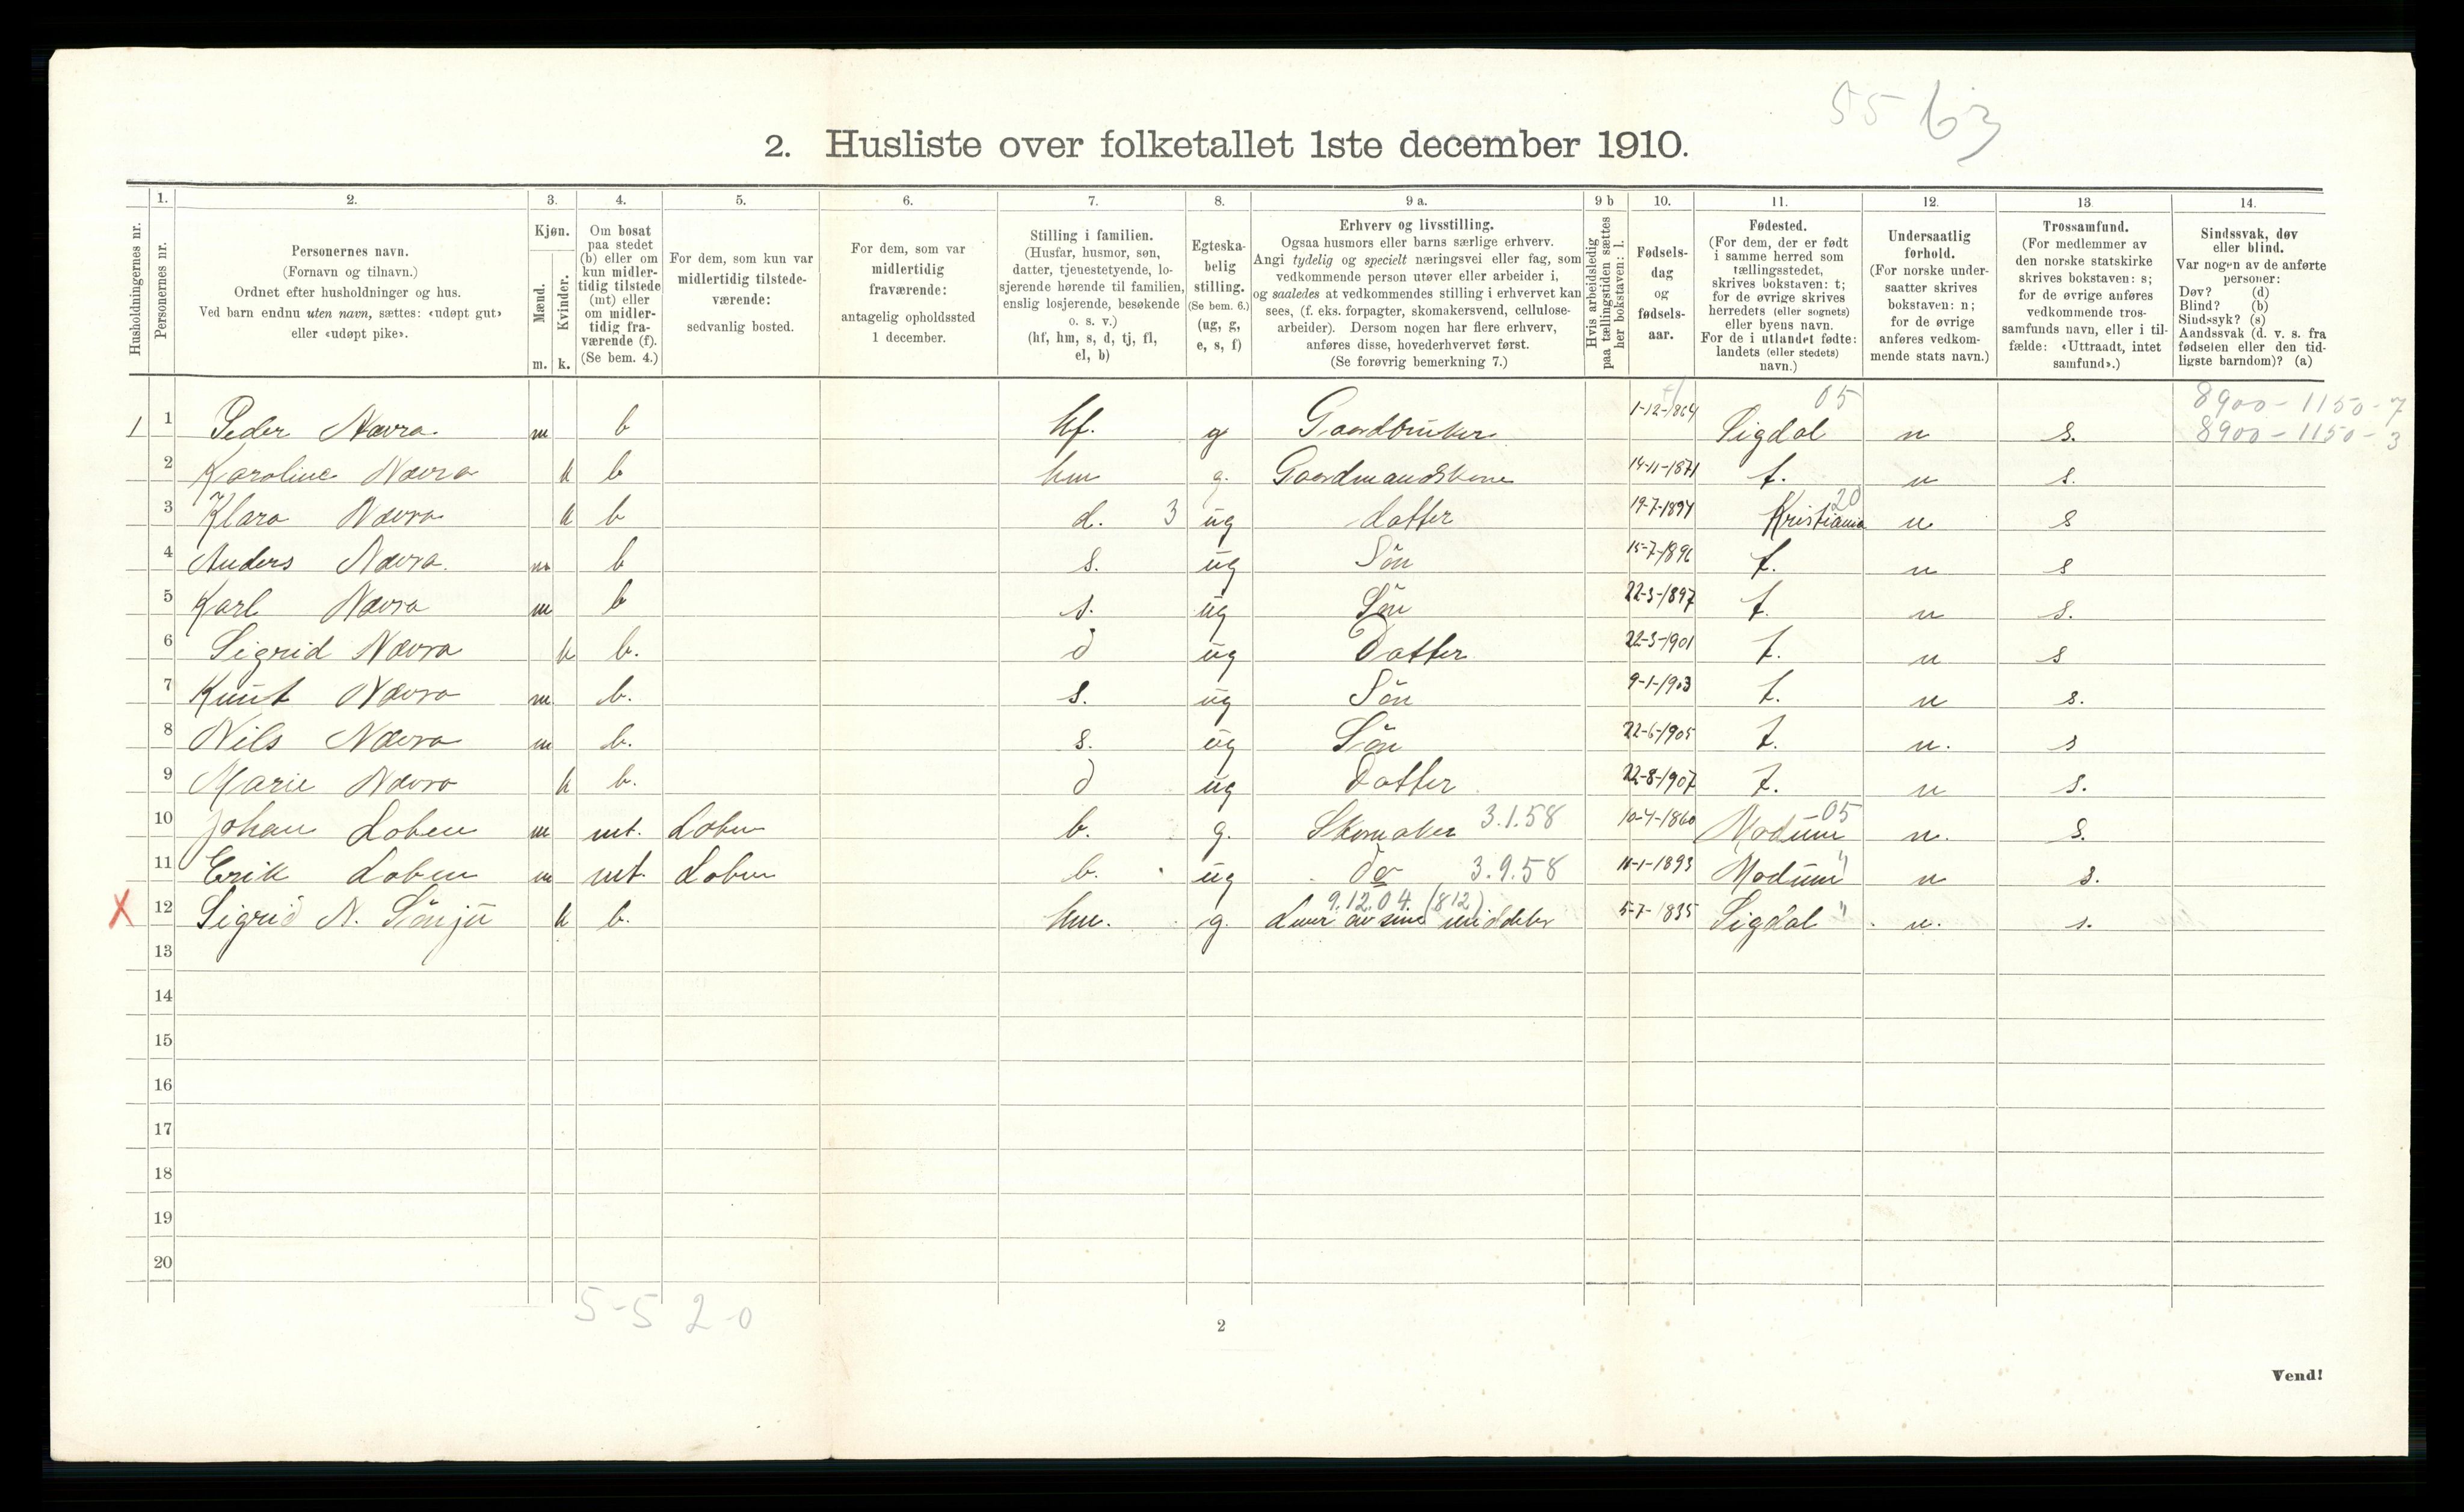 55 63
2. Husliste over folketallet 1ste december 1910.
Husholdningernes nr.
1.
Personernes nr.
2.
Personernes navn.
(Fornavn og tilnavn.)
Ordnet efter husholdninger og hus.
Ved barn endnu uten navn, sættes: «udøpt gut»
eller «udøpt pike».
3.
Kjøn.
Mænd.
m.
Kvinder.
k.
4.
Om bosat
paa stedet
(b) eller om
kun midler-
tidig tilstede
(mt) eller
om midler-
tidig fra-
værende (f).
(Se bem. 4.)
5.
For dem, som kun var
midlertidig tilstede-
værende:
sedvanlig bosted.
6.
For dem, som var
midlertidig
fraværende:
antagelig opholdssted
1 december.
7.
Stilling i familien.
(Husfar, husmor, søn,
datter, tjenestetyende, lo-
sjerende hørende til familien,
enslig losjerende, besøkende
o. s. v.)
(hf, hm, s, d, tj, fl,
el, b)
8.
Egteska-
belig
stilling.
(Se bem. 6.)
(ug, g,
e, s, f)
9 a.
Erhverv og livsstilling.
Ogsaa husmors eller barns særlige erhverv.
Angi tydelig og specielt næringsvei eller fag, som
vedkommende person utøver eller arbeider i,
og saaledes at vedkommendes stilling i erhvervet kan
sees, (f. eks. forpagter, skomakersvend, cellulose-
arbeider). Dersom nogen har flere erhverv,
anføres disse, hovederhvervet først.
(Se forøvrig bemerkning 7.)
9 b
Hvis arbeidsledig
paa tællingstiden sættes
her bokstaven: l.
10.
Fødsels-
dag
og
fødsels-
aar.
11.
Fødested.
(For dem, der er født
i samme herred som
tællingsstedet,
skrives bokstaven: t;
for de øvrige skrives
herredets (eller sognets)
eller byens navn.
For de i utlandet fødte:
landets (eller stedets)
navn.)
12.
Undersaatlig
forhold.
(For norske under-
saatter skrives
bokstaven: n;
for de øvrige
anføres vedkom-
mende stats navn.)
13.
Trossamfund.
(For medlemmer av
den norske statskirke
skrives bokstaven: s;
for de øvrige anføres
vedkommende tros-
samfunds navn, eller i til-
fælde: «Uttraadt, intet
samfund».)
14.
Sindssvak, døv
eller blind.
Var nogen av de anførte
personer:
Døv? (d)
Blind? (b)
Sindssyk? (s)
Aandssvak (d. v. s. fra
fødselen eller den tid-
ligste barndom)? (a)
05 8900-1150-7
1 1 Peder Nævra m b hf. g Gaardbruker 1-12-1864 Sigdal n s. 8900-1150-3
2 Karoline Nævra k b hm g. Gaardmandskone 14-11-1871 t. n s.
20
3 Klara Nævra k b d. 3 ug datter 19-7-1894 Kristiania n s
4 Anders Nævra. m b s. ug Sön 15-7-1896 t. n s
5 Karl Nævra m b s. ug Sön 22-3-1897 t. n s.
6 Sigrid Nævra k b. d ug Datter 22-3-1901 t. n s
7 Knut Nævra m b. s. ug Sön 9-1-1903 t. n s.
8 Nils Nævra m b. s. ug Sön 22-6-1905 t. n. s
9 Marie Nævra k b. d ug Datter 22-8-1907 t. n s.
10 Johan Loben m mt. Loben b. g. Skomaker 3.1.58 10-4-1860 Modum 05 n. s.
11 Erik Loben m mt. Loben b. ug do 3.9.58 16-1-1893 Modum " n s.
9.12.04 (812)
12 X Sigrid N. Sönju k b. hm. g. Lever av sine middeler 5-7-1835 Sigdal " n. s.
13
14
15
16
17
18
19
20
5-5 2-0
2
Vend!